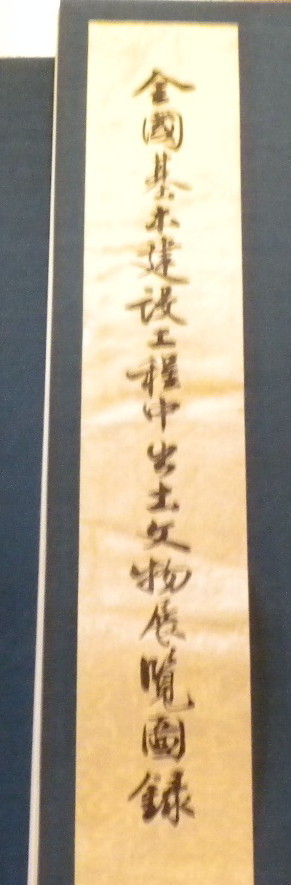 全國基本建設工程中出土文物展覽圖錄